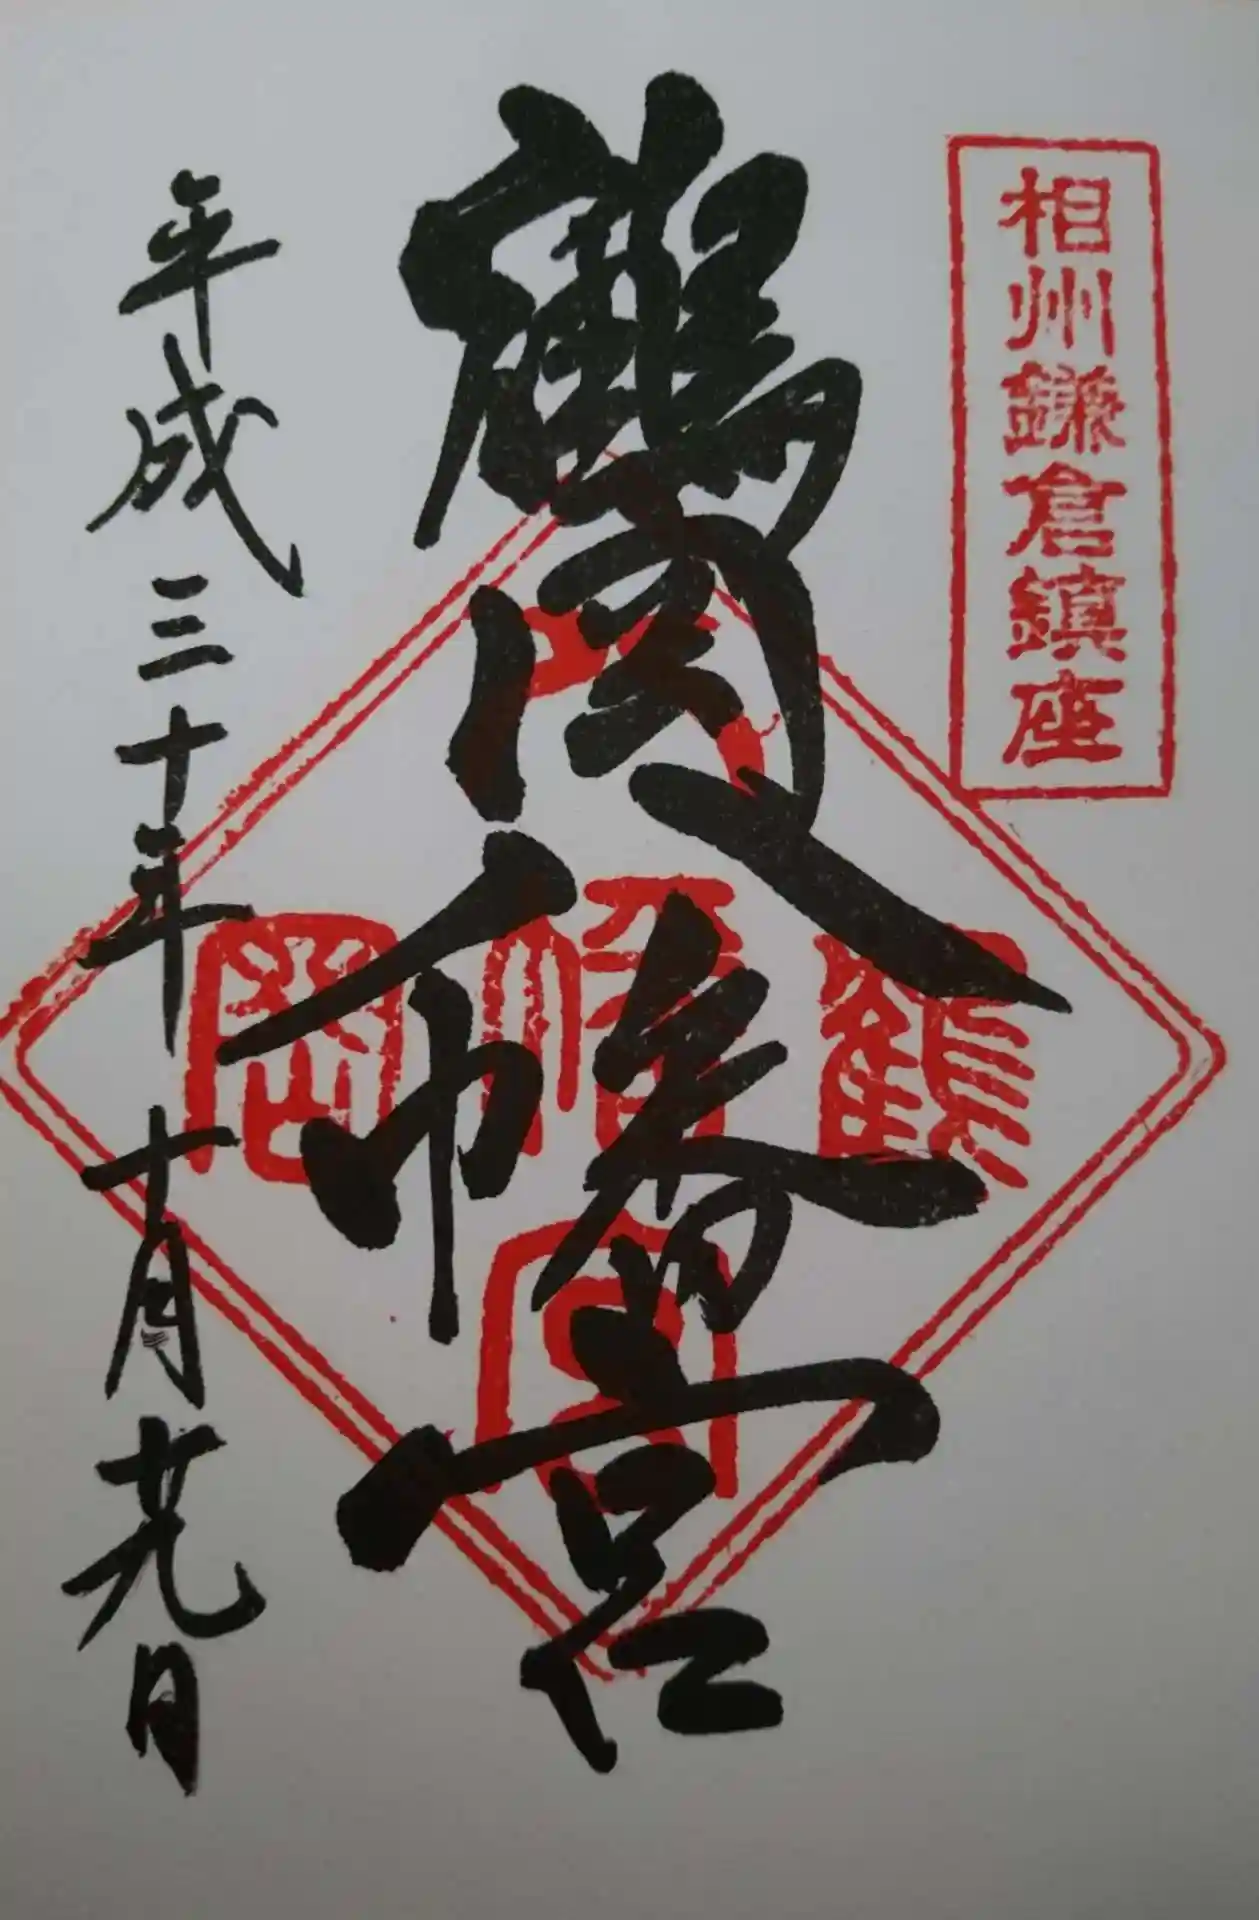 相州鎌倉鎮座
鶴岡八幡宮
鶴岡八幡宮
平成三十年十月廿九日